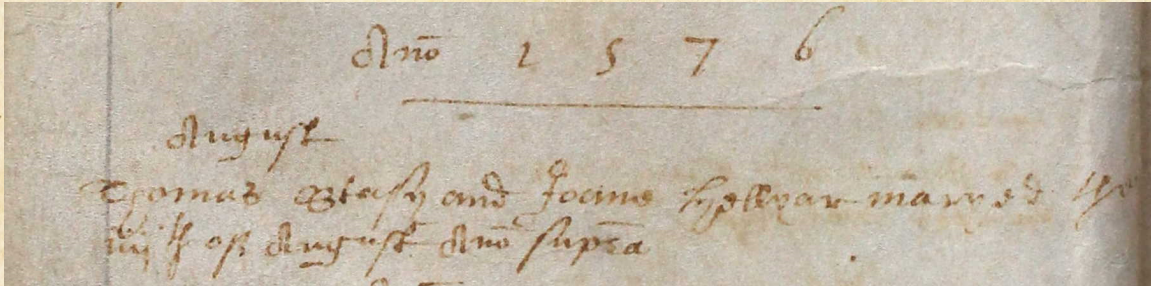 Ano 1 5 7 6
August
Thomas Stasy and Joane Hellyar maryed the
iiijth of August Ano supra